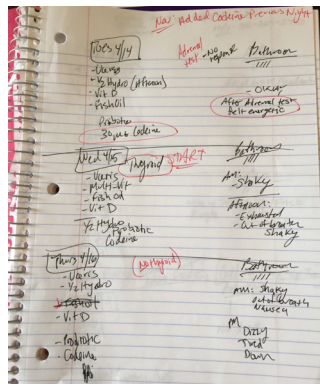 Now Added Codeine Previous Night
Tues 4/14
Adrenal test - No response
Bathroom
IIII
- Uceris
- Y2 Hydro (Afternoon)
- Vit D
- Fish Oil
Probiotic
30 mg Codeine
- Okay
After Adrenal test
Felt energetic
Wed 4/15
Thyroid START
Bathroom
IIII
- Uceris
- Multi-Vit
- Fish oil
- Vit D
Y2 Hydro
Probiotic
Codeine
AM:
- Shaky
Afternoon:
- Exhausted
- Out of breath
Shaky
Thurs 4/16
(No thyroid)
Bathroom
IIII
- Uceris
- Y2 Hydro
- Fish oil
- Vit D
- Probiotic
- Codeine
AM: Shaky
out of breath
Nausea
PM
Dizzy
Tired
Down